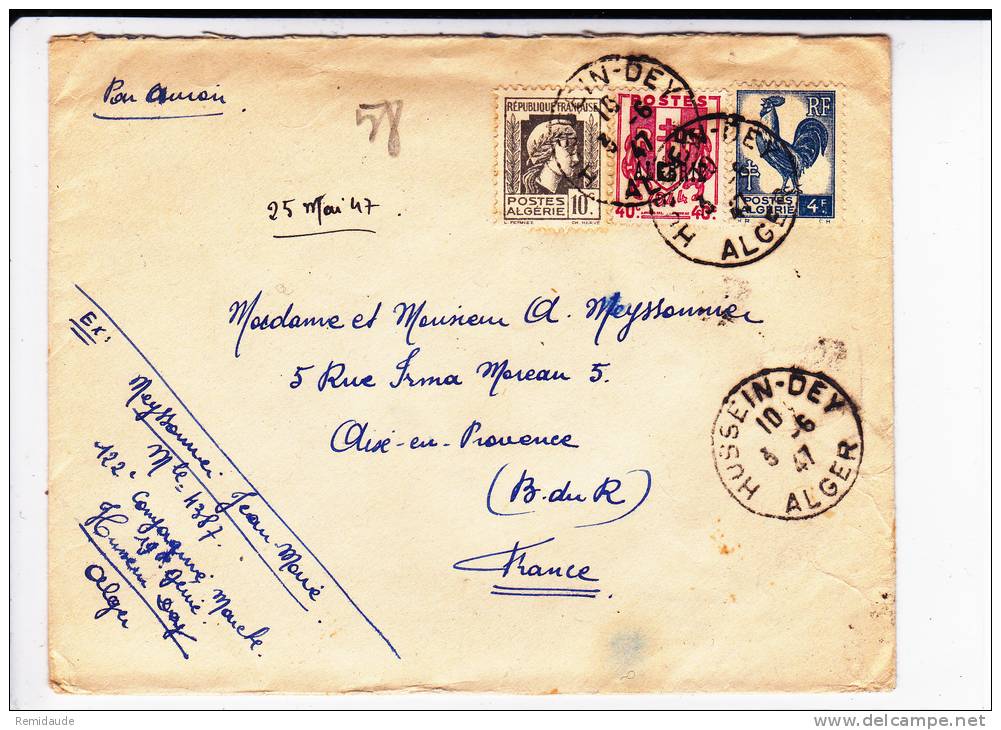 Par Avion
58
25 Mai 47.
RÉPUBLIQUE FRANÇAISE
POSTES
ALGÉRIE 10c
POSTES
ALGÉRIE
40c 40c
RF
POSTES
ALGÉRIE 4F
HUSSEIN-DEY
10
3 -6
47
ALGER
HUSSEIN-DEY
10
3 -6
47
ALGER
Madame et Monsieur A. Meyssonnier
5 Rue Irma Moreau 5.
Aix-en-Provence
(B. du R)
France
HUSSEIN-DEY
10
3 -6
47
ALGER
Ex:
Meyssonnier Jean-Marie
Mle- 4387.
122e Compagnie Marche
19e Génie.
Hussein Dey
Alger
Remidaude
delcampe.net